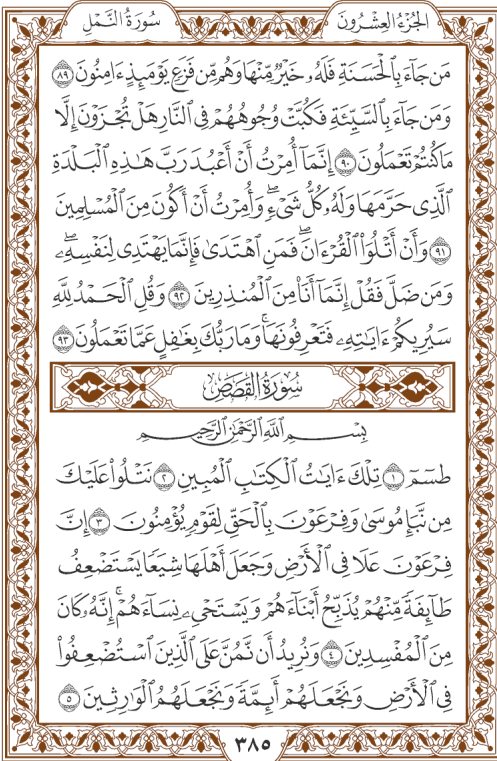 الجُزْءُ العِشْرُونَ سُورَةُ النَّمْلِ
مَن جَآءَ بِٱلْحَسَنَةِ فَلَهُۥ خَيْرٌ مِّنْهَا وَهُم مِّن فَزَعٍ يَوْمَئِذٍ ءَامِنُونَ ٨٩
وَمَن جَآءَ بِٱلسَّيِّئَةِ فَكُبَّتْ وُجُوهُهُمْ فِى ٱلنَّارِ هَلْ تُجْزَوْنَ إِلَّا
مَا كُنتُمْ تَعْمَلُونَ ٩٠ إِنَّمَآ أُمِرْتُ أَنْ أَعْبُدَ رَبَّ هَـٰذِهِ ٱلْبَلْدَةِ
ٱلَّذِى حَرَّمَهَا وَلَهُۥ كُلُّ شَىْءٍۖ وَأُمِرْتُ أَنْ أَكُونَ مِنَ ٱلْمُسْلِمِينَ
٩١ وَأَنْ أَتْلُوَا۟ ٱلْقُرْءَانَۖ فَمَنِ ٱهْتَدَىٰ فَإِنَّمَا يَهْتَدِى لِنَفْسِهِۦۖ
وَمَن ضَلَّ فَقُلْ إِنَّمَآ أَنَا۠ مِنَ ٱلْمُنذِرِينَ ٩٢ وَقُلِ ٱلْحَمْدُ لِلَّهِ
سَيُرِيكُمْ ءَايَـٰتِهِۦ فَتَعْرِفُونَهَاۚ وَمَا رَبُّكَ بِغَـٰفِلٍ عَمَّا تَعْمَلُونَ ٩٣
سُورَةُ القَصَصِ
بِسْمِ ٱللَّهِ ٱلرَّحْمَـٰنِ ٱلرَّحِيمِ
طسٓمٓ ١ تِلْكَ ءَايَـٰتُ ٱلْكِتَـٰبِ ٱلْمُبِينِ ٢ نَتْلُوا۟ عَلَيْكَ
مِن نَّبَإِ مُوسَىٰ وَفِرْعَوْنَ بِٱلْحَقِّ لِقَوْمٍ يُؤْمِنُونَ ٣ إِنَّ
فِرْعَوْنَ عَلَا فِى ٱلْأَرْضِ وَجَعَلَ أَهْلَهَا شِيَعًا يَسْتَضْعِفُ
طَآئِفَةً مِّنْهُمْ يُذَبِّحُ أَبْنَآءَهُمْ وَيَسْتَحْىِۦ نِسَآءَهُمْۚ إِنَّهُۥ كَانَ
مِنَ ٱلْمُفْسِدِينَ ٤ وَنُرِيدُ أَن نَّمُنَّ عَلَى ٱلَّذِينَ ٱسْتُضْعِفُوا۟
فِى ٱلْأَرْضِ وَنَجْعَلَهُمْ أَئِمَّةً وَنَجْعَلَهُمُ ٱلْوَٰرِثِينَ ٥
٣٨٥